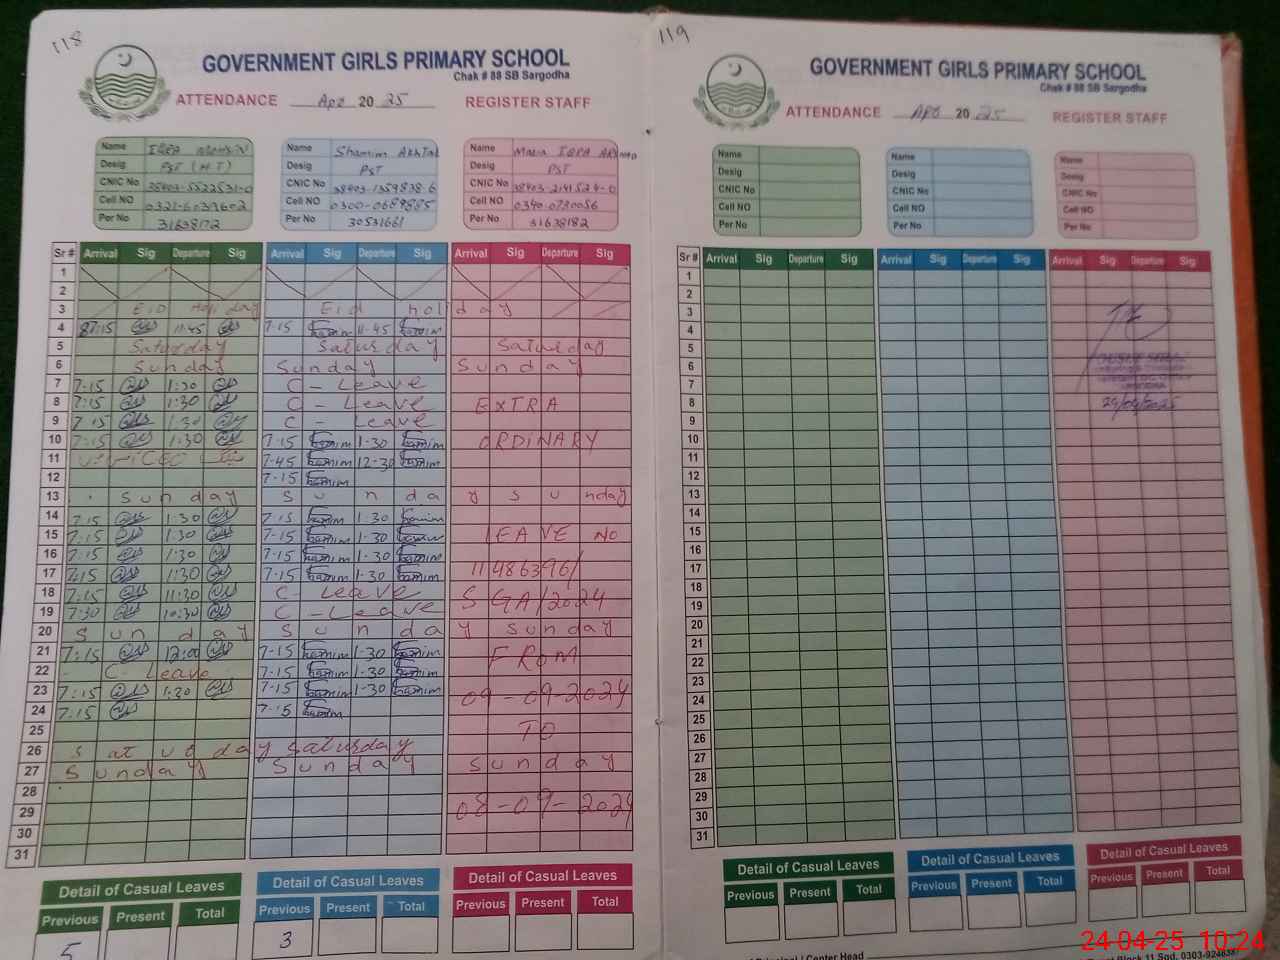 118
GOVERNMENT GIRLS PRIMARY SCHOOL
Chak # 88 SB Sargodha
ATTENDANCE Apr 20 25 REGISTER STAFF
Name IQRA MOHSIN Name Shamim Akhtar Name Maria IQRA
Desig PST (H.T) Desig PST Desig PST
CNIC No 38403-5522531-0 CNIC No 38403-1359838-6 CNIC No 38403-2141524-0
Cell NO 0321-6039602 Cell NO 0300-0689885 Cell NO 0340-0720056
Per No 31638172 Per No 30531661 Per No 31638182
Sr # Arrival Sig Departure Sig Arrival Sig Departure Sig Arrival Sig Departure Sig
1
2
3 Eid Holiday Eid holiday
4 8:15 11:45 7-15 11-45
5 Saturday Saturday Saturday
6 Sunday Sunday Sunday
7 7:15 1:30 C-Leave
8 7:15 1:30 C-Leave EXTRA
9 7:15 1:30 C-Leave
10 7:15 1:30 7-15 1-30 ORDINARY
11 7-45 12-30
12 7-15
13 Sunday Sunday Sunday
14 7:15 1:30 7-15 1-30
15 7:15 1:30 7-15 1-30 LEAVE NO
16 7:15 1:30 7-15 1-30
17 7:15 1:30 7-15 1-30 11486396/
18 7:15 11:30 C-Leave
19 7:30 10:30 C-Leave SGA/2024
20 Sunday Sunday Sunday
21 7:15 12:00 7-15 1-30
22 C-Leave 7-15 1-30 FROM
23 7:15 1:30 7-15 1-30 09-09-2024
24 7:15 7-15
25 TO
26 Saturday Saturday
27 Sunday Sunday Sunday
28
29 08-09-2024
30
31
Detail of Casual Leaves Detail of Casual Leaves Detail of Casual Leaves
Previous Present Total Previous Present Total Previous Present Total
5 3
119
GOVERNMENT GIRLS PRIMARY SCHOOL
Chak # 88 SB Sargodha
ATTENDANCE Apr 20 25 REGISTER STAFF
Name Name Name
Desig Desig Desig
CNIC No CNIC No CNIC No
Cell NO Cell NO Cell NO
Per No Per No Per No
Sr # Arrival Sig Departure Sig Arrival Sig Departure Sig Arrival Sig Departure Sig
1
2
3
4
5
6
7
8 24/04/2025
9
10
11
12
13
14
15
16
17
18
19
20
21
22
23
24
25
26
27
28
29
30
31
Detail of Casual Leaves Detail of Casual Leaves Detail of Casual Leaves
Previous Present Total Previous Present Total Previous Present Total
Principal / Center Head
Block 11 Sgd, 0303-9246387
24-04-25 10:24